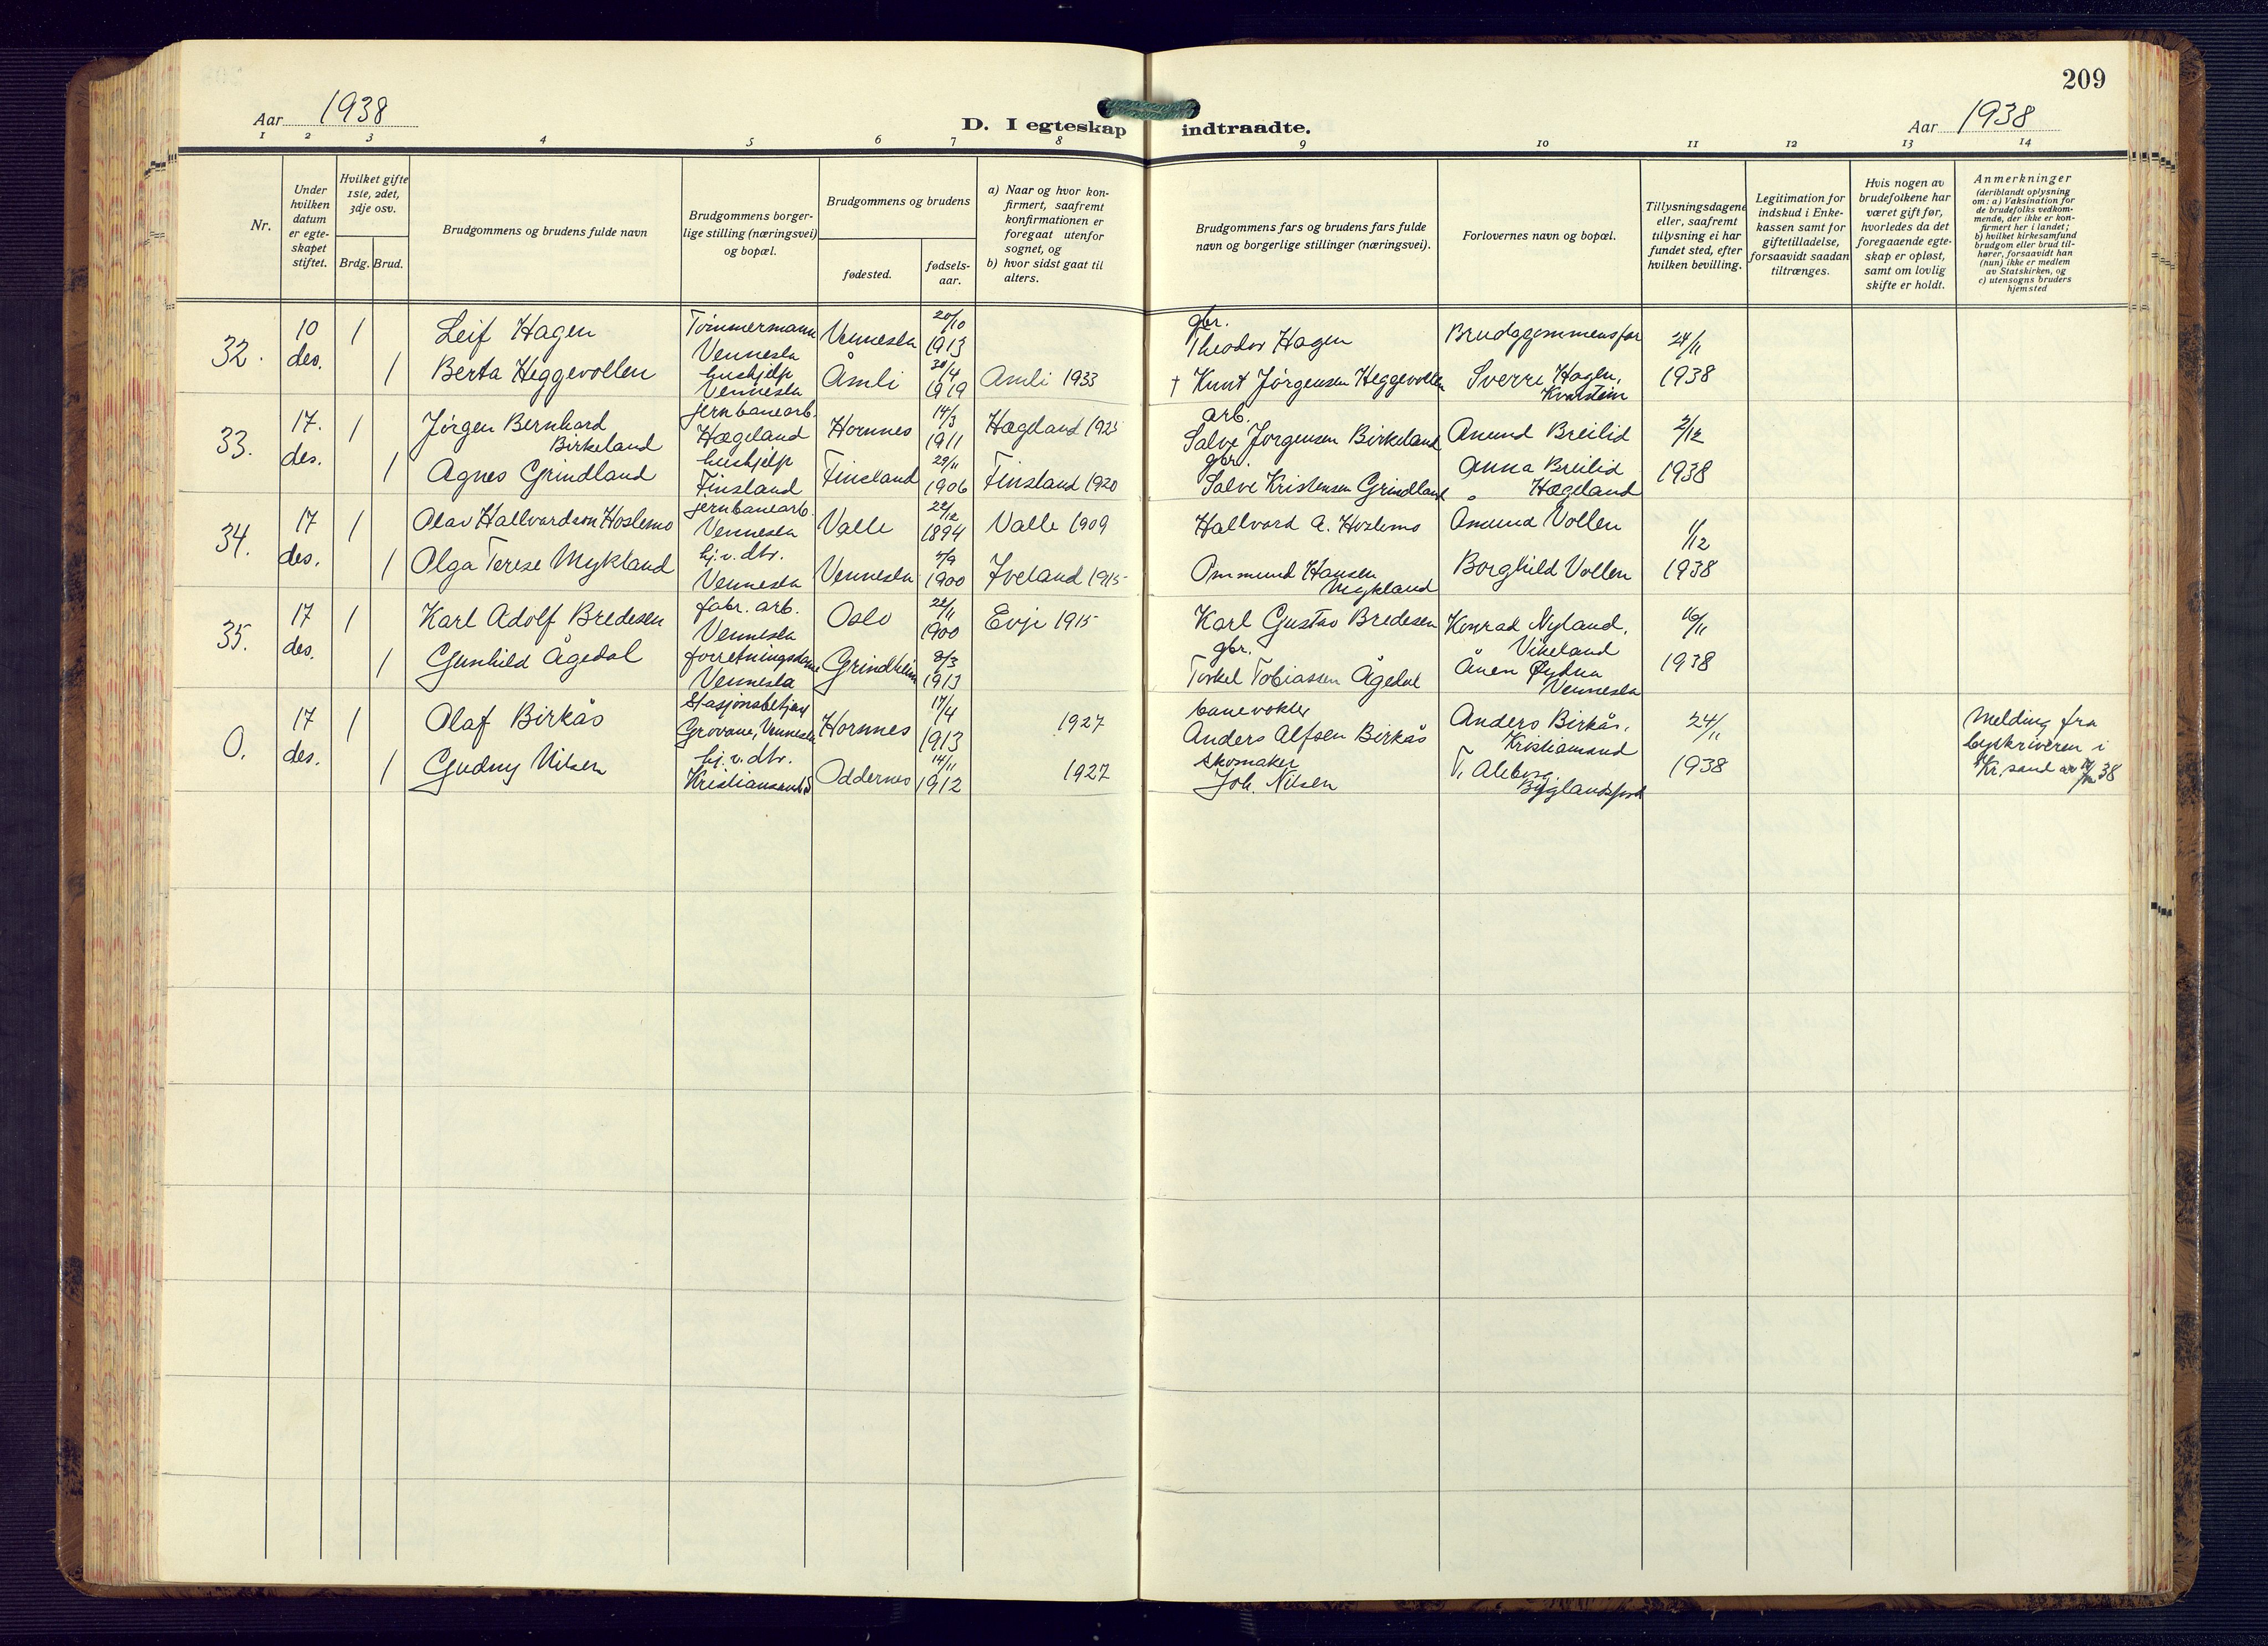 209
Aar 1938
D. I egteskap indtraadte.
Aar 1938
1 2 3 4 5 6 7 8 9 10 11 12 13 14
Nr.
Under hvilken datum er egte-skapet stiftet.
Hvilket gifte 1ste, 2det, 3dje osv.
Brdg. Brud.
Brudgommens og brudens fulde navn
Brudgommens borger-lige stilling (næringsvei) og bopæl.
Brudgommens og brudens
fødested.
fødsels-aar.
a) Naar og hvor kon-firmert, saafremt konfirmationen er foregaat utenfor sognet, og
b) hvor sidst gaat til alters.
Brudgommens fars og brudens fars fulde navn og borgerlige stillinger (næringsvei).
Forlovernes navn og bopæl.
Tillysningsdagene eller, saafremt tillysning ei har fundet sted, efter hvilken bevilling.
Legitimation for indskud i Enke-kassen samt for giftetilladelse, forsaavidt saadan tiltrænges.
Hvis nogen av brudefolkene har været gift før, hvorledes da det foregaaende egte-skap er opløst, samt om lovlig skifte er holdt.
Anmerkninger (deriblandt oplysning om: a) Vaksination for de brudefolks vedkom-mende, der ikke er kon-firmert her i landet; b) hvilket kirkesamfund brudgom eller brud til-hører, forsaavidt han (hun) ikke er medlem av Statskirken, og c) utensogns bruders hjemsted
32. 10 des. 1 Leif Hagen Tømmermann Vennesla Vennesla 20/10 1913 gbr. Theodor Hagen Brudgommens far 24/11 1938
1 Berta Heggevollen hushjelp Vennesla Åmli 30/4 1919 Åmli 1933 † Knut Jørgensen Heggevollen Sverre Hagen, Kvarstein
33. 17. des. 1 Jørgen Bernhard Birkeland jernbanearb. Hægeland Hornnes 14/3 1911 Hægeland 1925 arb. Salve Jørgensen Birkeland Anund Breilid 2/12 1938
1 Agnes Grindland hushjelp Finsland Finsland 29/11 1906 Finsland 1920 gbr. Salve Kristensen Grindland Anna Breilid Hægeland
34. 17 des. 1 Olav Hallvardson Hoslemo jernbanearb. Vennesla Valle 22/12 1894 Valle 1909 Hallvard A. Hoslemo Amund Vollen 1/12 1938
1 Olga Terese Mykland hj.v. dtr. Vennesla Vennesla 5/9 1900 Iveland 1915 Ommund Hansen Mykland Borghild Vollen
35. 17 des. 1 Karl Adolf Bredesen fabr. arb. Vennesla Oslo 22/11 1900 Evje 1915 Karl Gustav Bredesen Konrad Nyland, Vikeland 16/11 1938
1 Gunhild Ågedal forretningsdame Vennesla Grindheim 8/3 1913 gbr. Torkel Tobiassen Ågedal Ånen Øydna Vennesla
0. 17 des. 1 Olaf Birkås Stasjonsbetjent Grovane, Vennesla Hornnes 17/4 1913 1927 banevokter Anders Alfsen Birkås Anders Birkås, Kristiansand 24/11 1938 Melding fra byskriveren i Kr.sand
1 Gudny Nilsen hj.v. dtr. Kristiansand S Oddernes 14/11 1912 1927 skomaker Joh. Nilsen Byglandsfjord